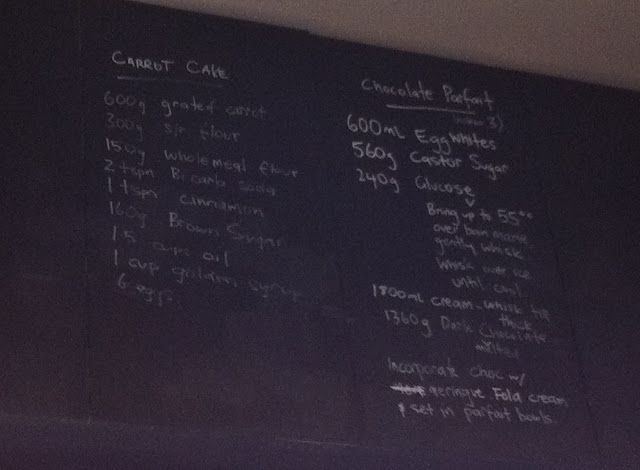 CARROT CAKE
600g grated carrot
300g s/r flour
150g wholemeal flour
2 tspn Bicarb soda
1 tspn cinnamon
160g Brown Sugar
1.5 cups oil
1 cup golden syrup
6 eggs
Chocolate Parfait
3)
600mL Egg Whites
560g Castor Sugar
240g Glucose
Bring up to 55°C
over bain marie
gently whisk
Whisk over ice
until cool
1800ml cream - whisk till
thick
1360g Dark Chocolate
melted
Incorporate choc w/
meringue. Fold cream
& set in parfait bowls